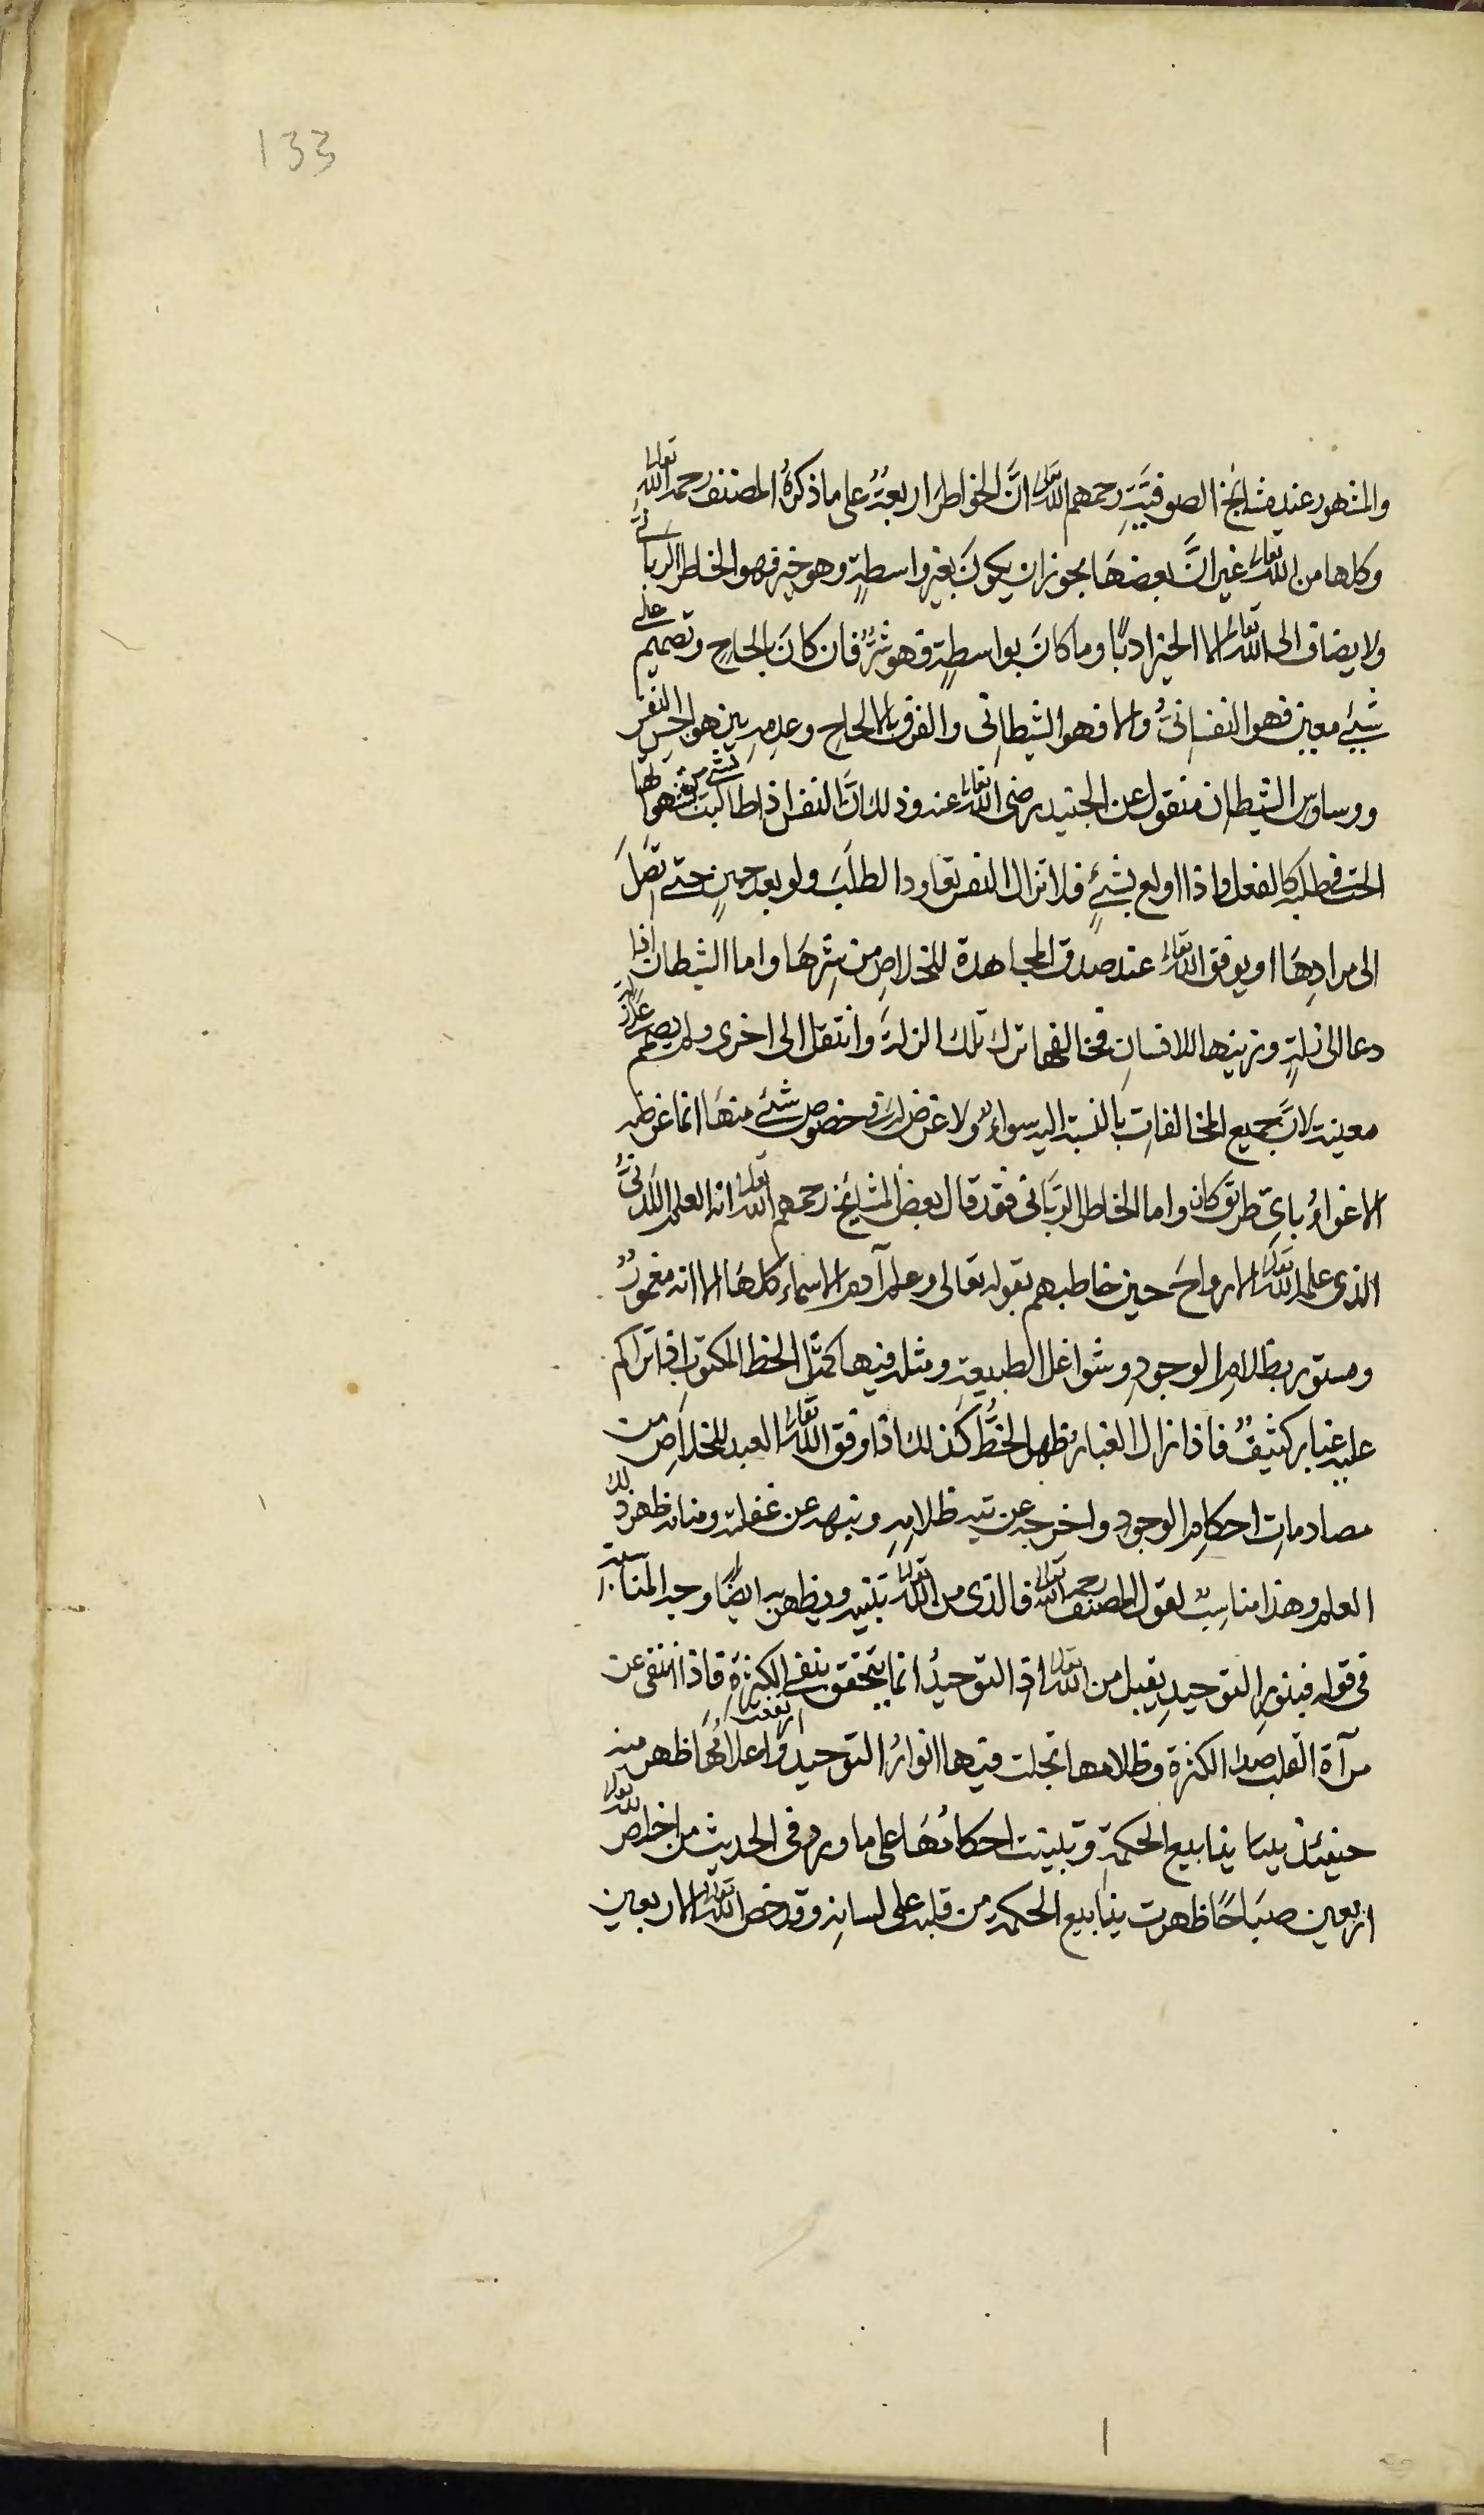 133
والمشهور عند مشايخ الصوفيّةِ رحمهم الله تعالى انَّ الخواطرَ اربعةٌ على ما ذكرهُ المصنف رحمه الله تعالى
وكلها من الله تعالى غير انَّ بعضهَا يجوز ان يكونَ بغير واسطةٍ وهو خير فهو الخاطر الربانىّ
ولا يضاف الى الله تعالى الا الخير ادبًا وما كانَ بواسطةٍ فهو شرٌّ فان كانَ بالحاحِ وتصميم على
شيئ معين فهو النفسانىُّ والا فهو الشيطانى والفرق بالالحاحِ وعدمهِ بين هواجس النفس
ووساوس الشيطان منقول عن الجنيد رضى الله تعالى عنه وذلك انَّ النفس اذا طالبت بشئ من شهواتها
الحت فى طلبه كالفعل واذا اولع بشيئٍ فلا تزال النفس تعاود الطلبَ ولو بعد حينٍ حتى تصلَ
الى مرادِهَا او يوفق الله تعالى عند صدق المجاهدة للخلاصِ من شرِّهَا واما الشيطان اذا
دعا الى زلةٍ وزينها للانسانِ فخالفها ترك تلك الزلةَ وانتقل الى اخرى ولم يصمم على زلة
معينة لانَّ جميع المخالفاتِ بالنسبة اليه سواءٌ ولا غرض له فى خصوص شئ منهَا انما غرضه
الاغواءُ باىّ طريق كان واما الخاطر الربَّانى فقد قال بعض المشايخ رحمهم الله تعالى انه العلم اللَّدنىُّ
الذى علم الله تعالى الارواحَ حين خاطبهم بقوله تعالى وعلم آدم الاسماء كلهَا الا انه مغمورٌ
ومستور بظلام الوجودِ وشواغل الطبيعة ومثله فيها كمثل الخط المكتوبِ اذا تراكم
عليه غبار كثيفٌ فاذا زال الغبارُ ظهر الخطُّ كذلك اذا وفق الله تعالى العبد للخلاصِ من
مصادماتِ احكام الوجودِ واخرجه عن تيه ظلامِهِ ونبهه عن غفلته ومنامه ظهر ذلك
العلم وهذا مناسبٌ لقول المصنف رحمه الله تعالى فالذى من الله تعالى تنبيه ويظهر به ايضًا وجه المناسبة
فى قوله فبنورِ التوحيدِ يقبل من الله تعالى اذِ التوحيدُ انما يتحقق بنفى الكثرةِ فاذا انتفى عن
مرآة القلب صدا الكثرة وظلامها تجلت فيها انوارُ التوحيد وارتفعت اعلامُهَا ظهر منه
حينئذ ينابيع الحكمةِ وتبينت احكامُهَا على ما ورد فى الحديث من اخلص لله تعالى
اربعين صبَاحًا ظهرت ينابيع الحكمة من قلبه على لسانِه وقد خص الله تعالى الاربعين